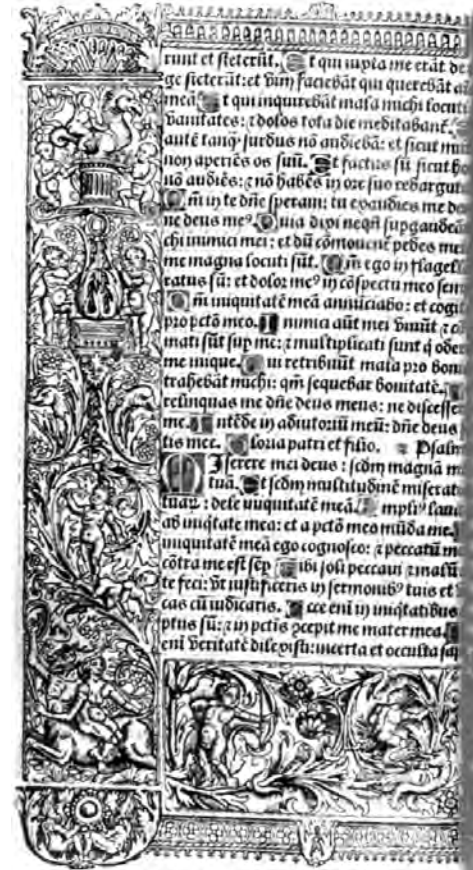 runt et steterūt. Et qui iuxta me erāt de
ge steterāt: et vim faciebāt qui querebāt ai
meā. Et qui inquirebāt mala michi locuti
vanitates: ⁊ dolos tota die meditabant.
autē tanq̄ surdus nō audiebā: et sicut mu
non aperiēs os suū. Et factus sū sicut ho
nō audiēs: ⁊ nō habēs in ore suo redargut
Qm̄ in te dn̄e speraui: tu exaudies me do
ne deus meꝰ. Quia dixi neqn̄ supgaudeā
chi inimici mei: et dū cōmouent̄ pedes mei
me magna locuti sūt. Qm̄ ego in flagell
ratus sū: et dolor meꝰ in cōspectu meo sem
Qm̄ iniquitatē meā annūciabo: et cogi
pro pctō meo. Inimici aūt mei viuūt ⁊ cō
mati sūt sup me: ⁊ multiplicati sunt q̄ ode
me inique. Qui retribuūt mala pro boni
trahebāt michi: qm̄ sequebar bonitatē.
relinquas me dn̄e deus meus: ne discesse
me. Intēde in adiutoriū meū: dn̄e deus
tis mee. Gloria patri et filio. Psalm
Miserere mei deus: scdm̄ magnā m
tuā. Et scdm̄ multitudinē miserati
tuaꝝ: dele iniquitatē meā. Amplius laua
ab iniq̄tate mea: et a pctō meo mūda me.
iniquitatē meā ego cognosco: ⁊ peccatū m
cōtra me est sēp. Tibi soli peccaui ⁊ malū
te feci: vt iustificeris in sermonibꝰ tuis et v
cas cū iudicaris. Ecce enī in iniq̄tatibus
ptus sū: ⁊ in pctis ɔcepit me mater mea.
enī veritatē dilexisti: incerta et occulta sap